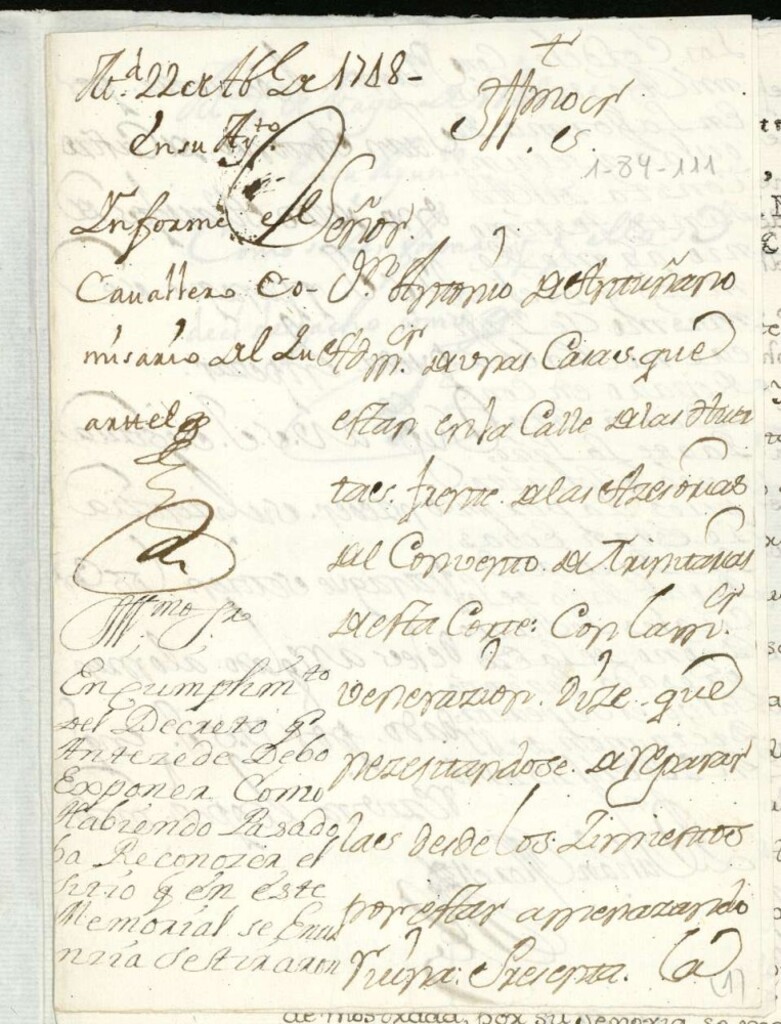 Md. 22 de Abl de 1748-
En su Ayto.
Informe el
Cavallero Co-
misario del Qu
arttel
Illmo Sr
En Cumplimto
del Decreto q
Antezede Debo
Exponer Como
Habiendo Pasado
ha Reconozer el
sitio q en este
Memorial se Enun
nzia se tiraron
+
Illmo Sr
1-84-111
Señor
Dn Antonio de Antuñano
Admor de unas Casas que
estan en la Calle de las Huer
tas frente de las Azesorias
del Convento de Trinitarias
de esta Corte: Con la mr
venerazion Dize que
nezesitandose de reparar
las desde los Zimientos
por estar amenazando
ruina: Presenta la
(1)
de mostrada, por su Señoria se